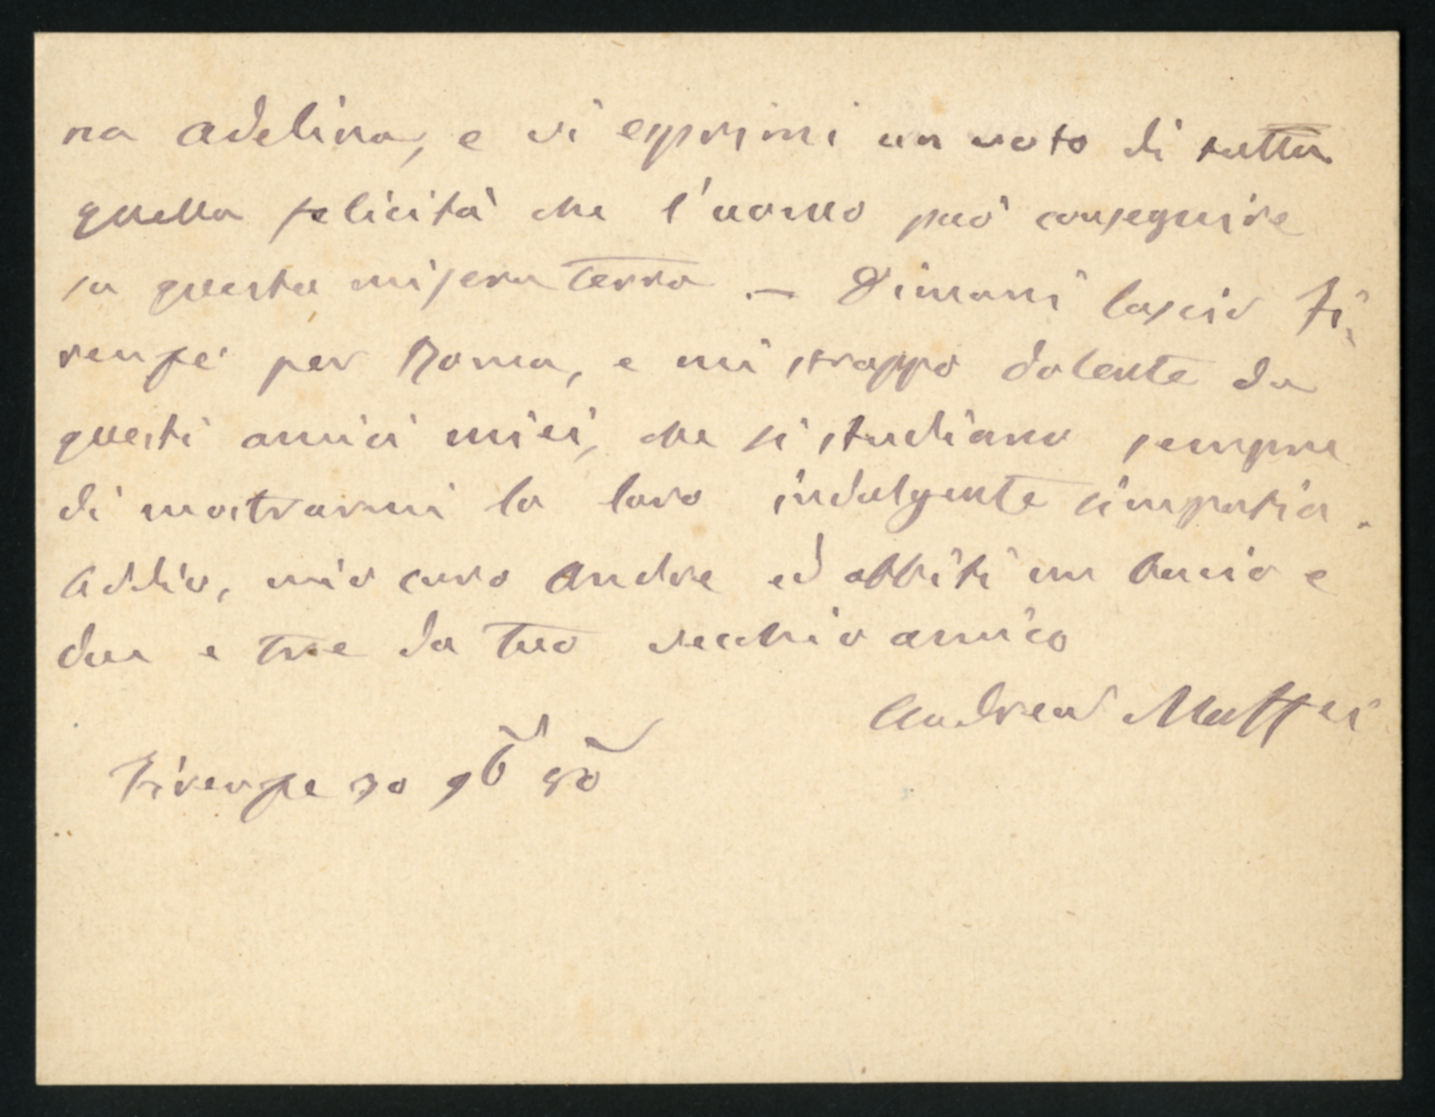 na Adelina, e vi esprimi un voto di tutta
quella felicità che l'uomo può conseguire
su questa misera terra. — Dimani lascio Fi,
renze per Roma, e mi strappo dolente da
questi amici miei, che si studiano sempre
di mostrarmi la loro indulgente simpatia.
Addio, mio caro Andre ed abbiti un bacio e
due e tre da tuo vecchio amico
Andrea Maffei
Firenze 30 9b